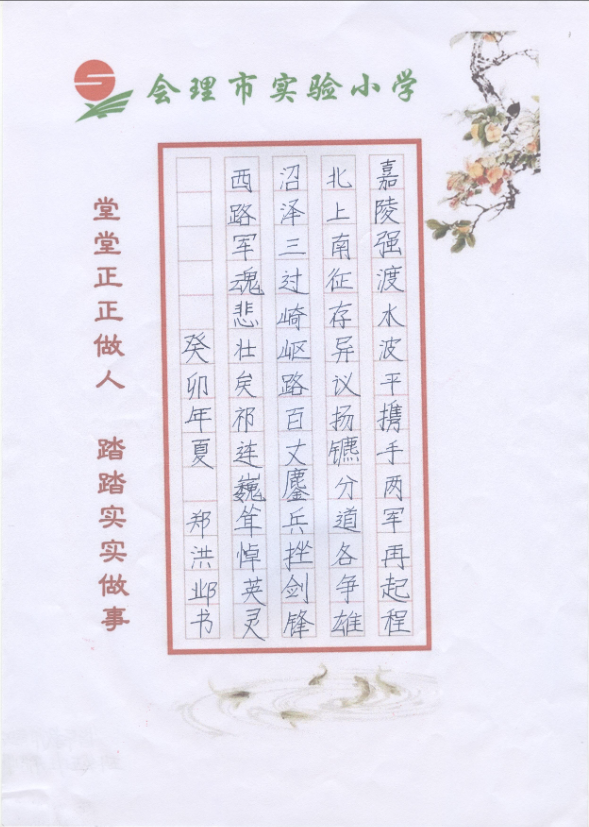 会理市实验小学
嘉陵强渡水波平携手两军再起程
北上南征存异议扬镳分道各争雄
沼泽三过崎岖路百丈鏖兵挫剑锋
西路军魂悲壮矣祁连巍耸悼英灵
癸卯年夏 郑洪邺书
堂堂正正做人 踏踏实实做事